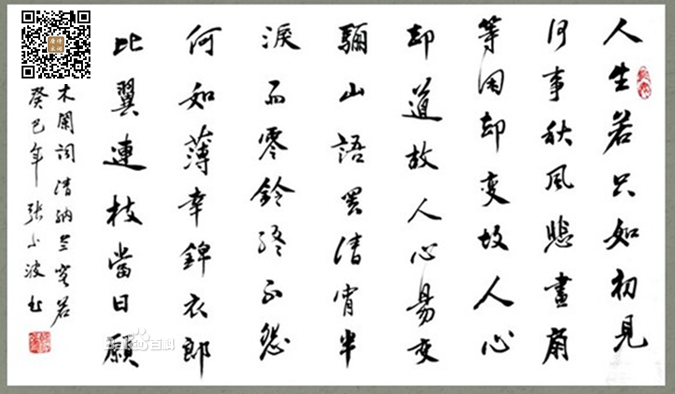 人生若只如初見
何事秋風悲畫扇
等闲却變故人心
却道故人心易变
驪山語罢清宵半
淚雨零鈴終不怨
何如薄幸錦衣郎
比翼連枝當日願
木蘭詞清納兰容若
癸巳年張小波书
百科